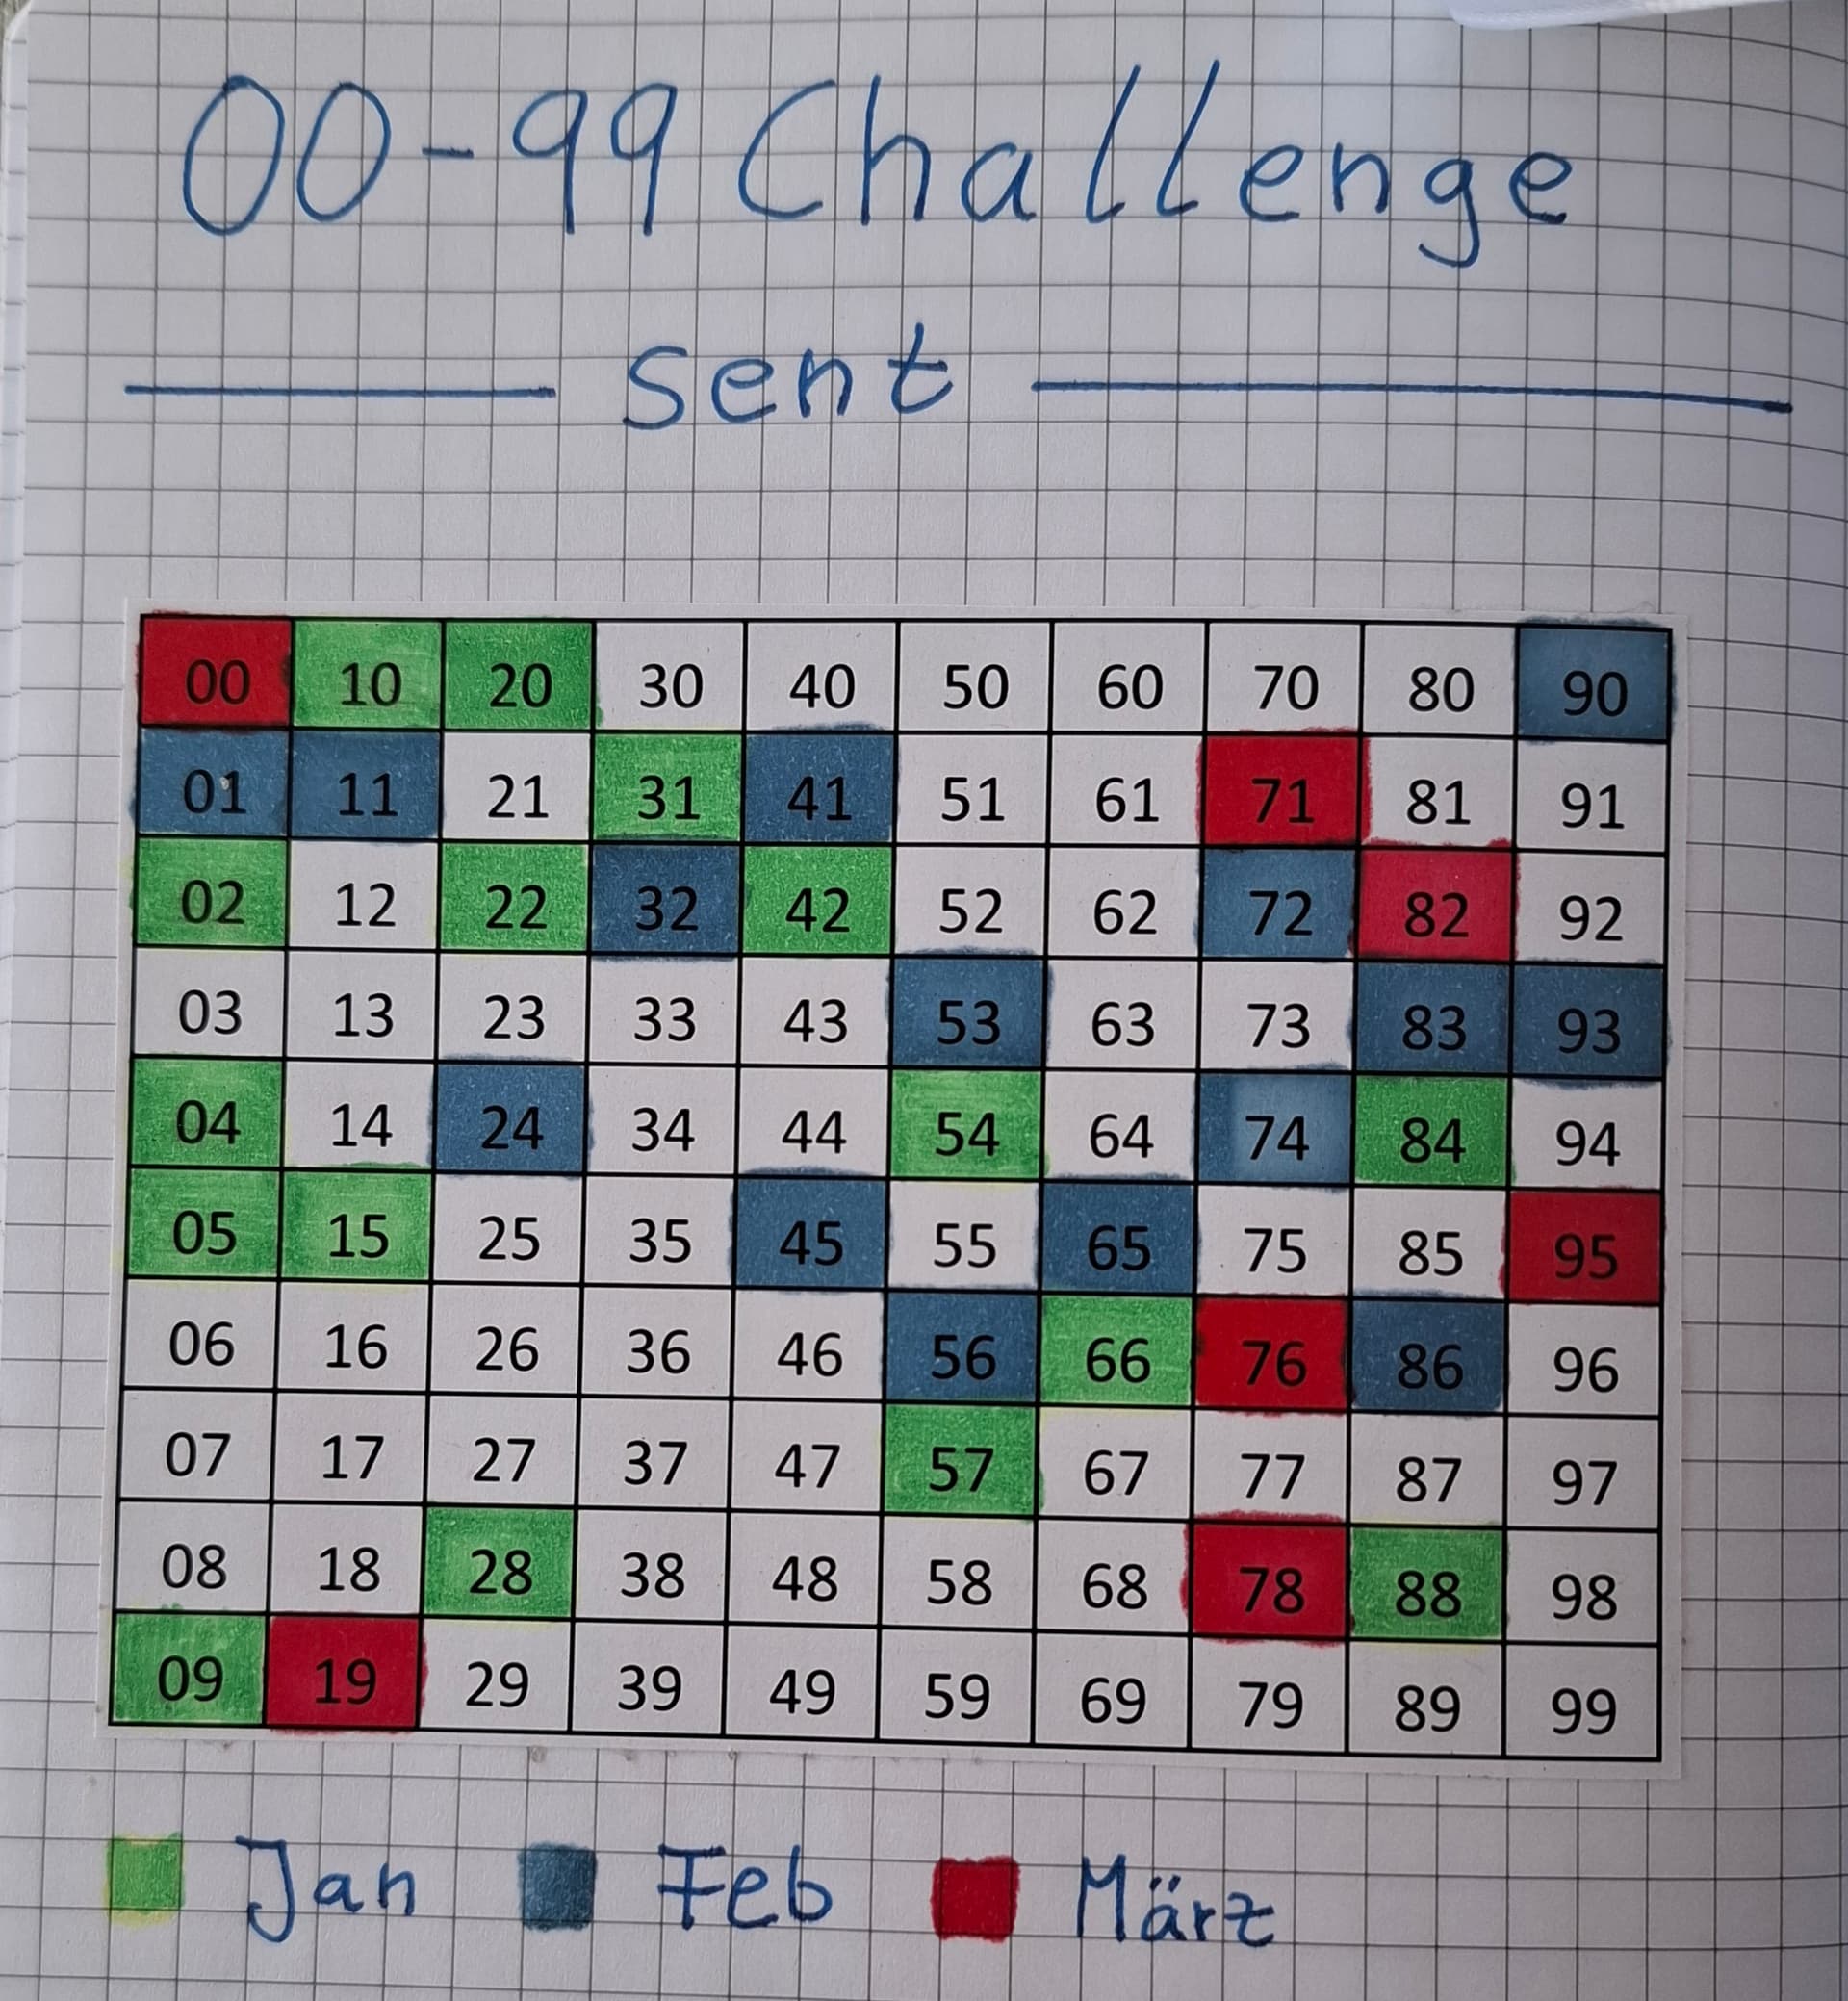 00-99 Challenge
sent
00 10 20 30 40 50 60 70 80 90
01 11 21 31 41 51 61 71 81 91
02 12 22 32 42 52 62 72 82 92
03 13 23 33 43 53 63 73 83 93
04 14 24 34 44 54 64 74 84 94
05 15 25 35 45 55 65 75 85 95
06 16 26 36 46 56 66 76 86 96
07 17 27 37 47 57 67 77 87 97
08 18 28 38 48 58 68 78 88 98
09 19 29 39 49 59 69 79 89 99
Jan Feb März